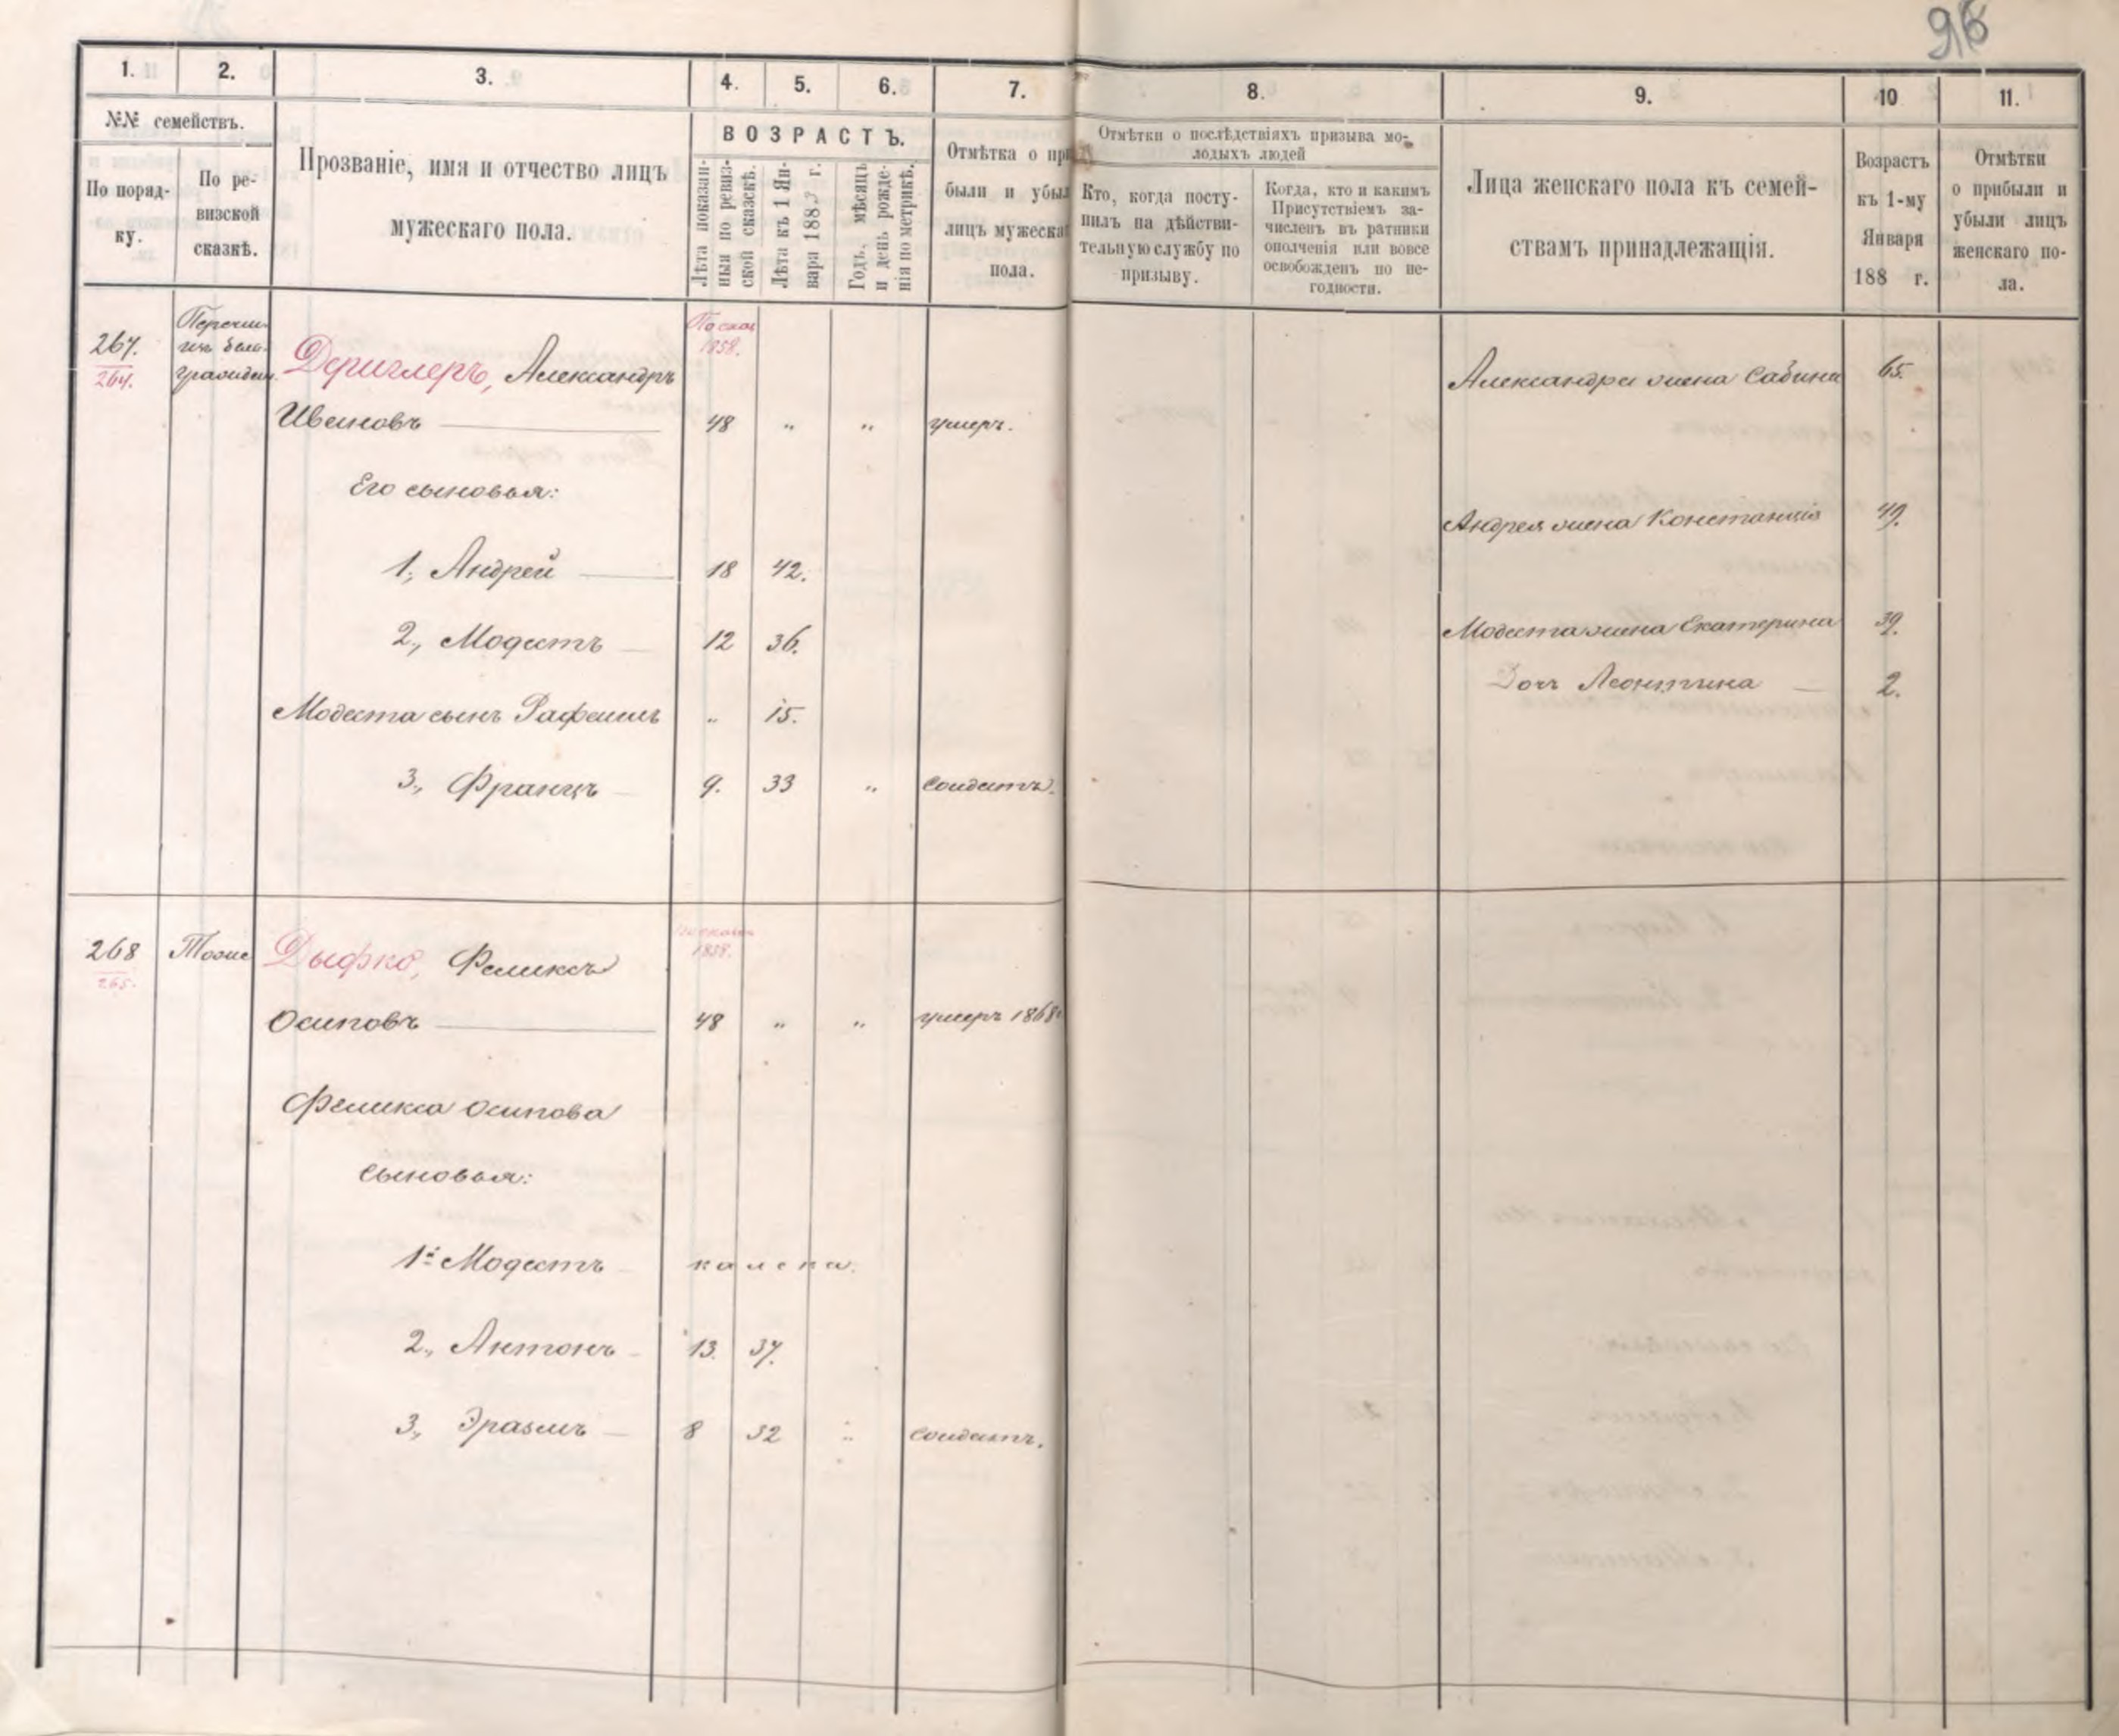 96
1. 2. 3. 4. 5. 6. 7. 8. 9. 10 11.
№№ семействъ.
По поряд-
ку.
По ре-
визской
сказкѣ.
Прозваніе, имя и отчество лицъ
мужескаго пола.
ВОЗРАСТЪ.
Лѣта показан-
ныя по ревиз-
ской сказскѣ.
Лѣта къ 1 Ян-
варя 1883 г.
Годъ, мѣсяцъ
и день рожде-
нія по метрикѣ.
Отмѣтка о при
были и убыл
лицъ мужеска
пола.
Отмѣтки о послѣдствіяхъ призыва мо-
лодыхъ людей
Кто, когда посту-
пилъ на дѣйстви-
тельную службу по
призыву.
Когда, кто и какимъ
Присутствіемъ за-
численъ въ ратники
ополченія или вовсе
освобожденъ по не-
годности.
Лица женскаго пола къ семей-
ствамъ принадлежащія.
Возрастъ
къ 1-му
Января
188 г.
Отмѣтки
о прибыли и
убыли лицъ
женскаго по-
ла.
267. Перечис. По сказ
264. изъ бело- 1858.
гражден. Деричлеръ, Александръ Александра жена Сабина 65.
Ивановъ 48 " " умеръ.
Его сыновья:
Андрея жена Констанція 49.
1, Андрей 18 42.
2., Модестъ 12 36. Модеста жена Екатерина 39.
Дочь Леонтина 2.
Модеста сынъ Рафаилъ " 15.
3., Францъ 9. 33 " солдатъ.
268 Тоже Дыфко, Феликсъ 1858.
265.
Осиповъ 48 " " умеръ 1868
Феликса Осипова
сыновья:
1й Модестъ калека.
2., Антонъ 13. 37.
3., Эразмъ 8 32 " солдатъ.